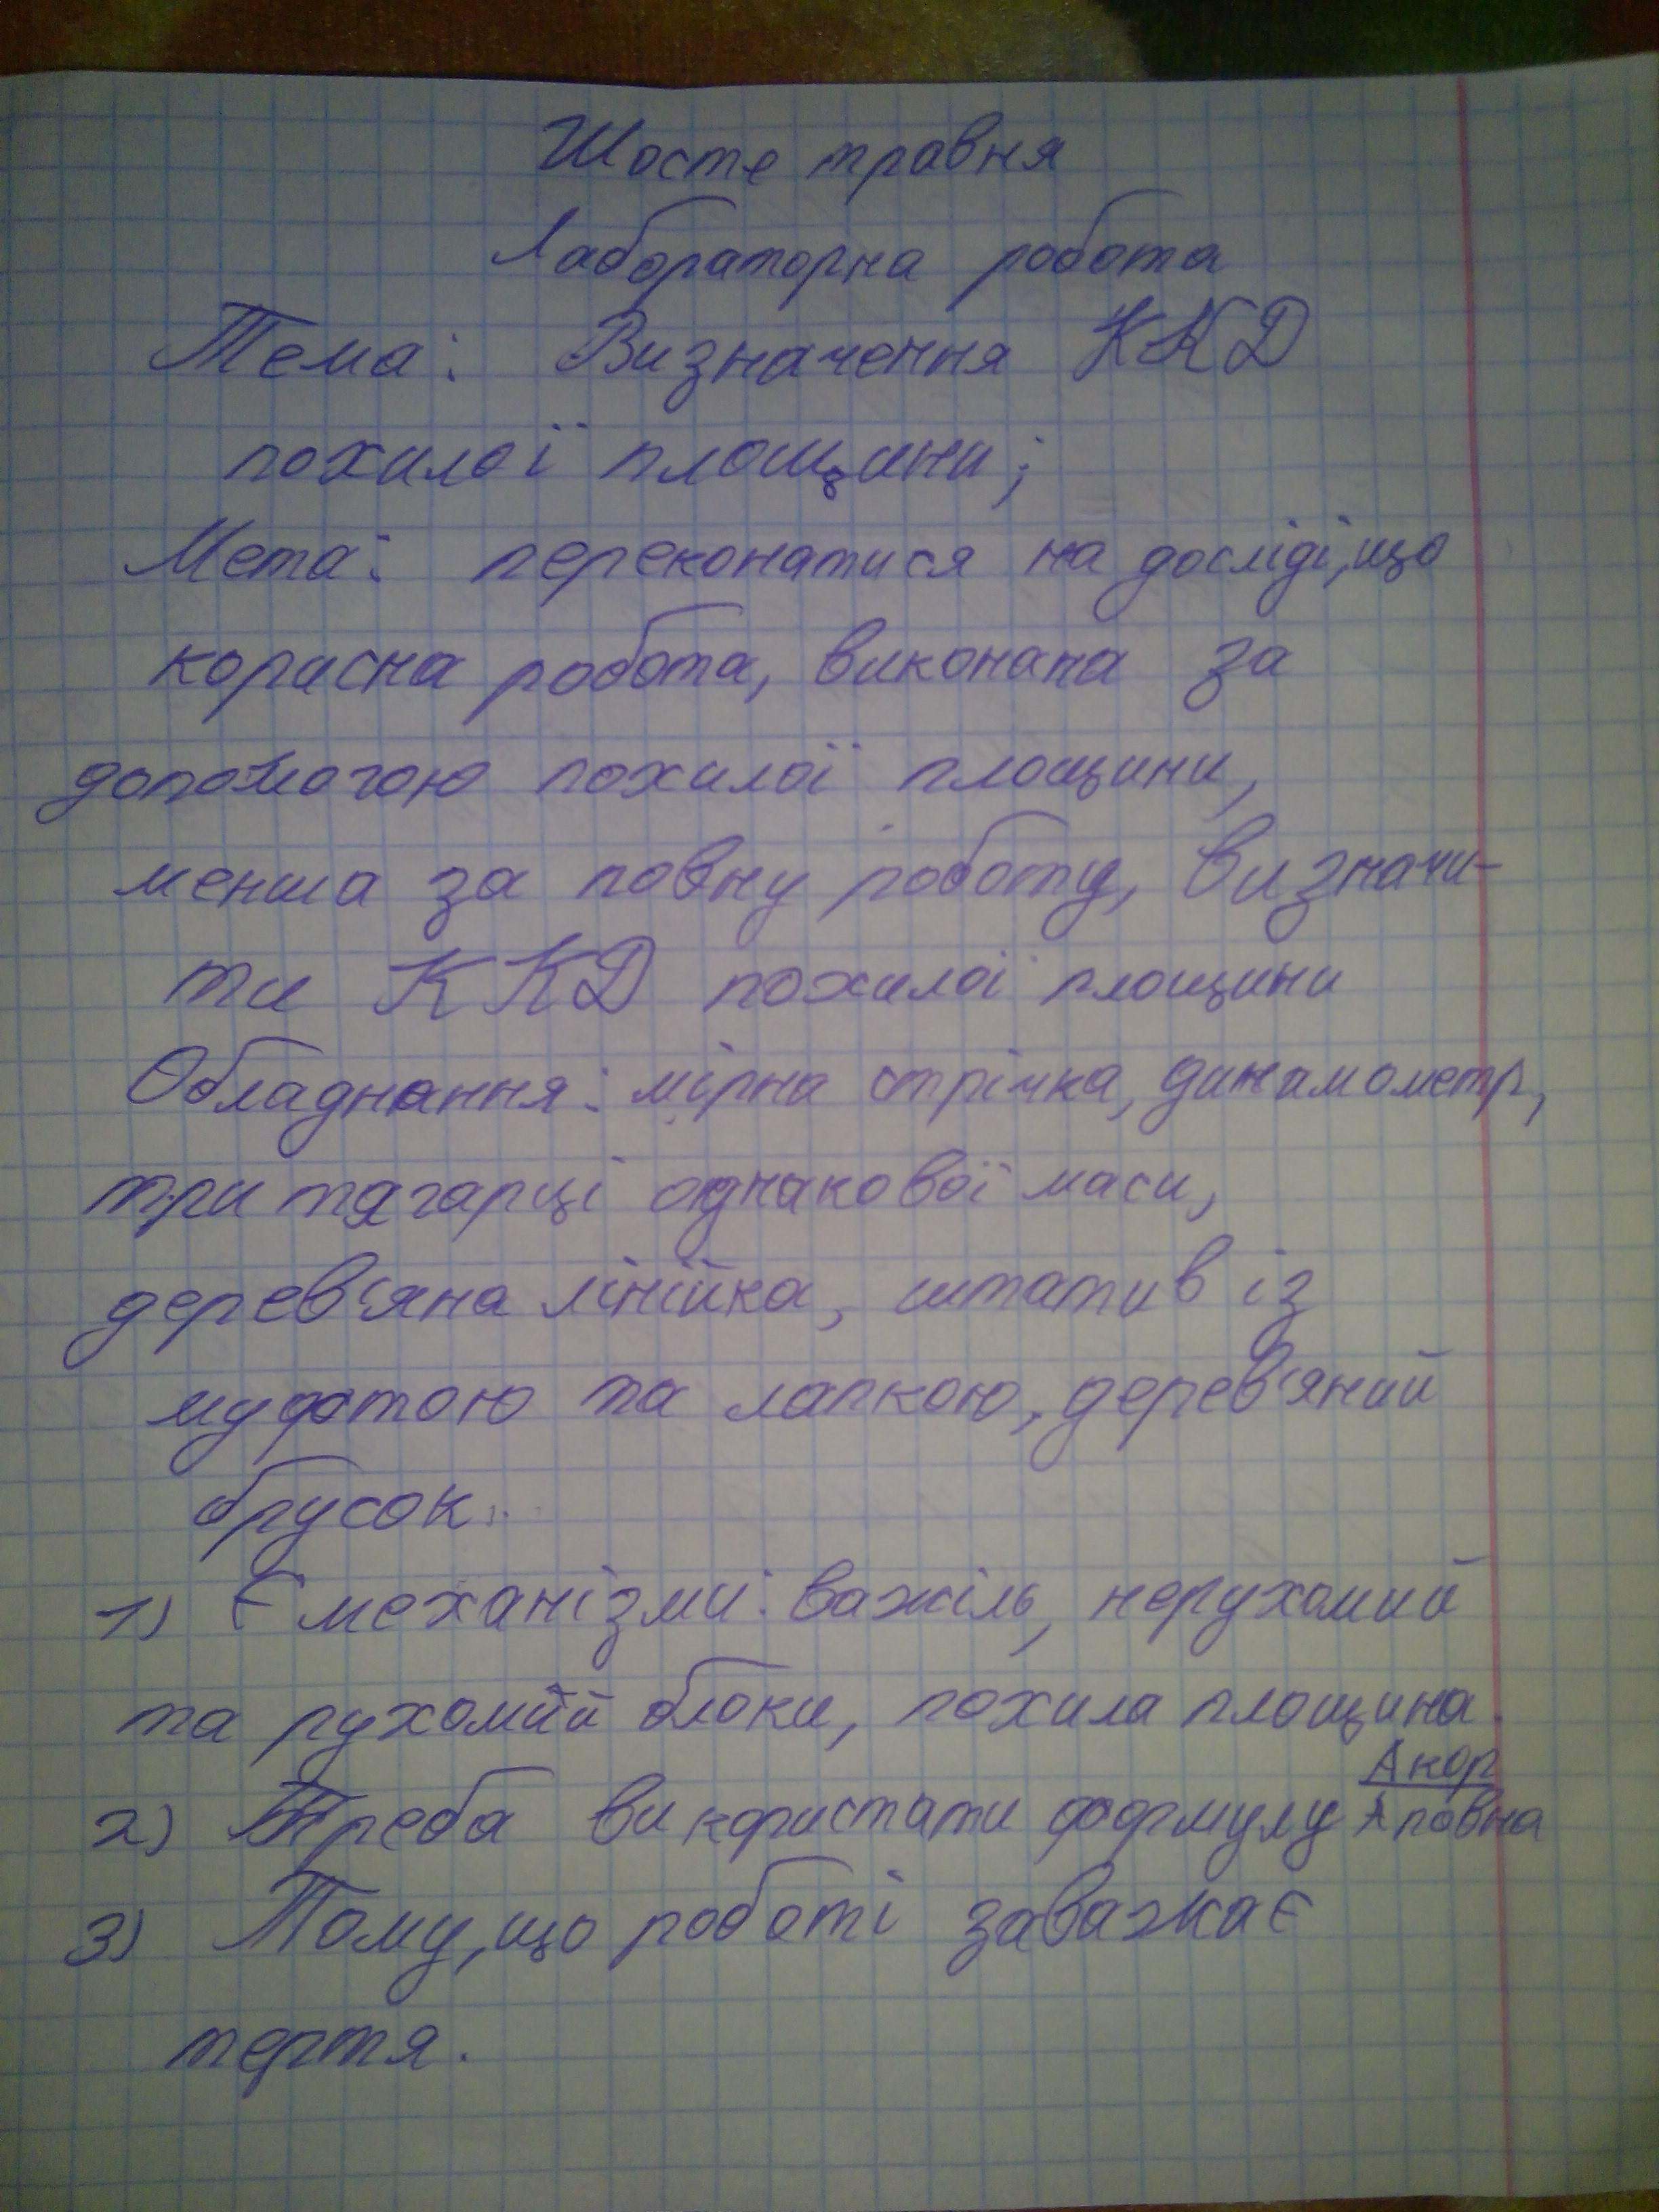 Шосте травня
Лабораторна робота
Тема: Визначення ККД
похилої площини;
Мета: переконатися на досліді, що
корисна робота, виконана за
допомогою похилої площини,
менша за повну роботу, визначи-
ти ККД похилої площини
Обладнання: мірна стрічка, динамометр,
три тягарці однакової маси,
дерев'яна лінійка, штатив із
муфтою та лапкою, дерев'яний
брусок.
1) Є механізми: важіль, нерухомий
та рухомий блоки, похила площина.
2) Треба використати формулу Aкор / Aповна
3) Тому, що роботі заважає
тертя.